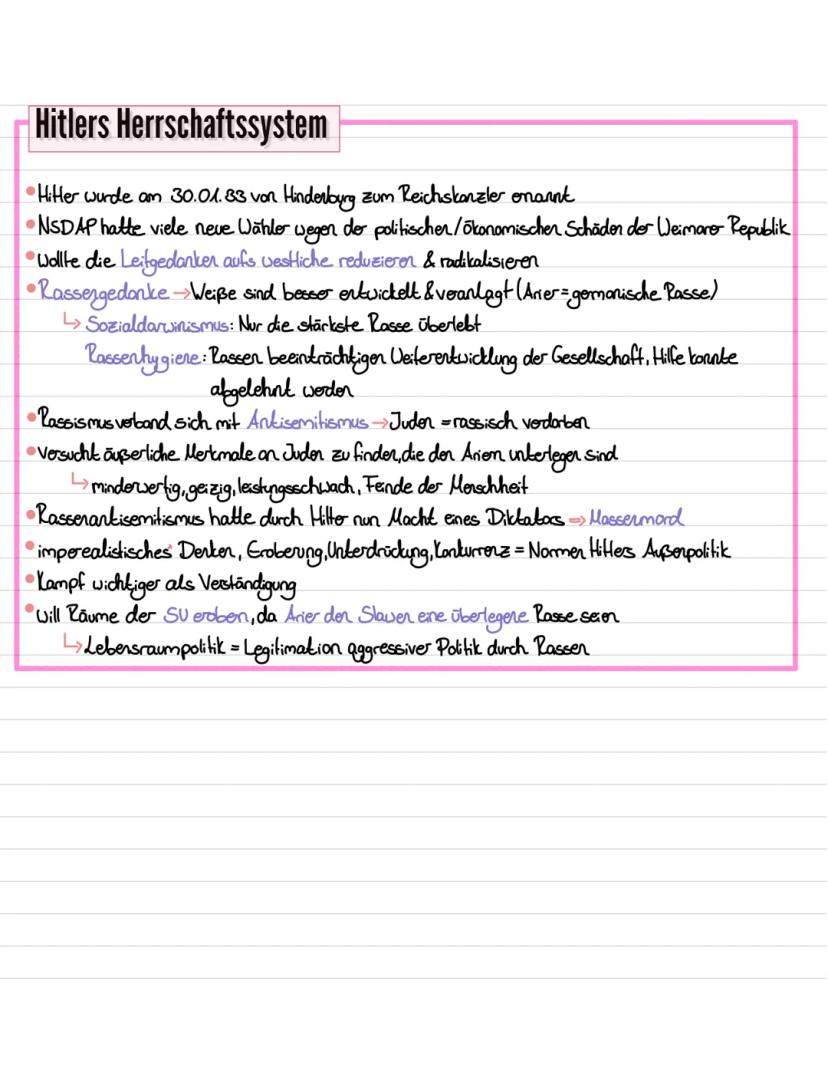 Hitlers Herrschaftssystem
• Hitler wurde am 30.01.33 von Hindenburg zum Reichskanzler ernannt
• NSDAP hatte viele neue Wähler wegen der politischen/ökonomischen Schäden der Weimarer Republik
• Wollte die Leitgedanken aufs westliche reduzieren & radikalisieren
• Rassengedanke → Weiße sind besser entwickelt & veranlagt (Arier = germanische Rasse)
↳ Sozialdarwinismus: Nur die stärkste Rasse überlebt
Rassenhygiene: Rassen beeinträchtigen Weiterentwicklung der Gesellschaft, Hilfe konnte
abgelehnt werden
• Rassismus verband sich mit Antisemitismus → Juden = rassisch verdorben
• Versucht äußerliche Merkmale an Juden zu finden, die den Ariern unterlegen sind
↳ minderwertig, geizig, leistungsschwach, Feinde der Menschheit
• Rassenantisemitismus hatte durch Hitler nun Macht eines Diktators ⇒ Massenmord
• imperealistisches Denken, Eroberung, Unterdrückung, Konkurrenz = Normen Hitlers Außenpolitik
• Kampf wichtiger als Verständigung
• Will Räume der SU erobern, da Arier den Slawen eine überlegene Rasse seien
↳ Lebensraumpolitik = Legitimation aggressiver Politik durch Rassen